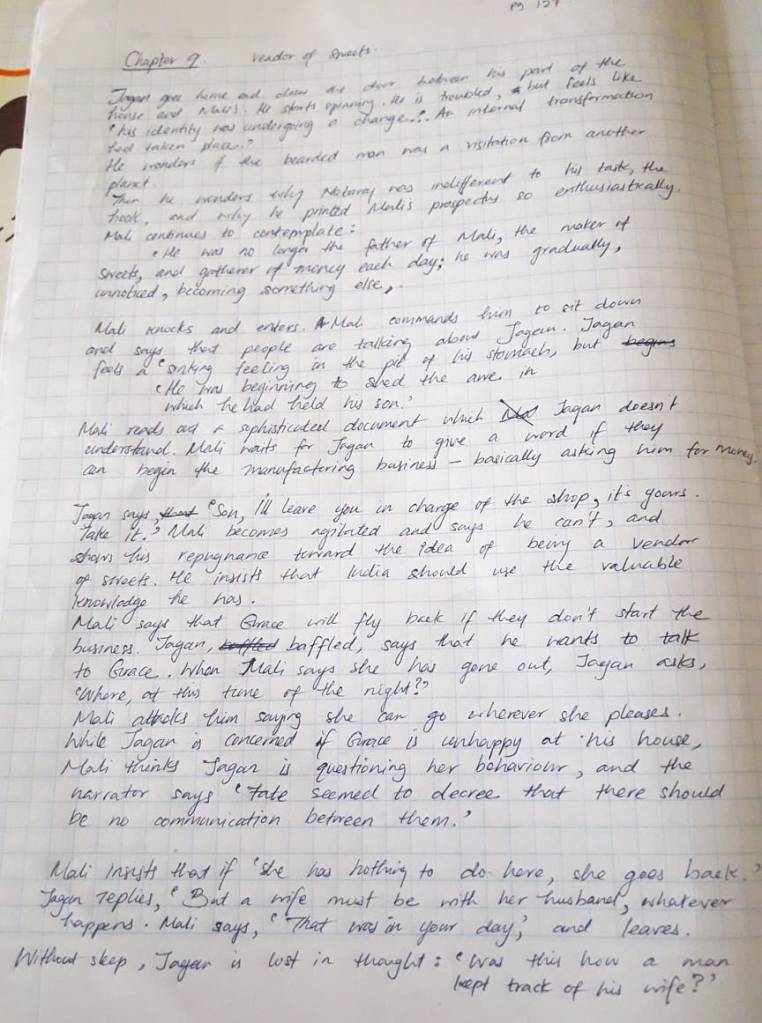 pg 127
Chapter 9. Vendor of Sweets.
Jagan goes home and closes the door between his part of the
house and Mali's. He starts spinning. He is troubled, but feels like
'his identity was undergoing a change..'. An internal transformation
had taken place.'
He wonders if the bearded man was a visitation from another
planet.
Then he wonders why Nataraj was indifferent to his task, the
book, and why he printed Mali's prospectus so enthusiastically.
Mali continues to contemplate:
'He was no longer the father of Mali, the maker of
sweets, and gatherer of money each day; he was gradually,
unnoticed, becoming something else,.
Mali knocks and enters. Mali commands him to sit down
and says that people are talking about Jagan. Jagan
feels a 'sinking feeling in the pit of his stomach, but begins
'He was beginning to shed the awe in
which he had held his son.'
Mali reads out a sophisticated document which Jagan doesn't
understand. Mali waits for Jagan to give a word if they
can begin the manufactoring business – basically asking him for money.
Jagan says, that 'Son, I'll leave you in charge of the shop, it's yours.
Take it.' Mali becomes agitated and says he can't, and
shows his repugnance toward the idea of being a vendor
of sweets. He insists that India should use the valuable
knowledge he has.
Mali says that Grace will fly back if they don't start the
business. Jagan, baffled baffled, says that he wants to talk
to Grace. When Mali says she has gone out, Jagan asks,
'Where, at this time of the night?'
Mali attacks him saying she can go wherever she pleases.
While Jagan is concerned if Grace is unhappy at his house,
Mali thinks Jagan is questioning her behaviour, and the
narrator says 'Fate seemed to decree that there should
be no communication between them.'
Mali insists that if 'she has nothing to do here, she goes back.'
Jagan replies, 'But a wife must be with her husband, whatever
happens. Mali says, 'That was in your day,' and leaves.
Without sleep, Jagan is lost in thought: 'Was this how a man
kept track of his wife?'